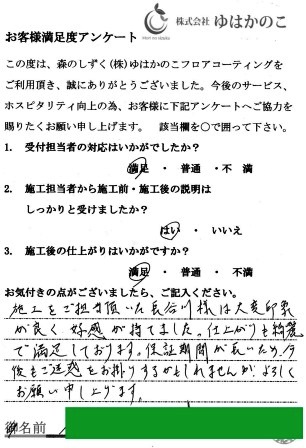 株式会社 ゆはかのこ
お客様満足度アンケート
この度は、森のしずく(株)ゆはかのこフロアコーティングを
ご利用頂き、誠にありがとうございました。今後のサービス、
ホスピタリティ向上の為、お客様に下記アンケートへご協力を
賜りたくお願い申し上げます。 該当欄を○で囲って下さい。
1. 受付担当者の対応はいかがでしたか?
満足 ・ 普通 ・不 満
2. 施工担当者から施工前・施工後の説明は
しっかりと受けましたか?
はい ・ いいえ
3. 施工後の仕上がりはいかがですか?
満足 ・ 普通 ・ 不満
お気付きの点がございましたら、ご記入ください。
施工をご担当頂いた長谷川様は大変印象
が良く好感が持てました。仕上がりも綺麗
で満足しております。保証期間が長いため今
後もご迷惑をお掛けするかもしれませんが、よろしく
お願い申し上げます。
御名前